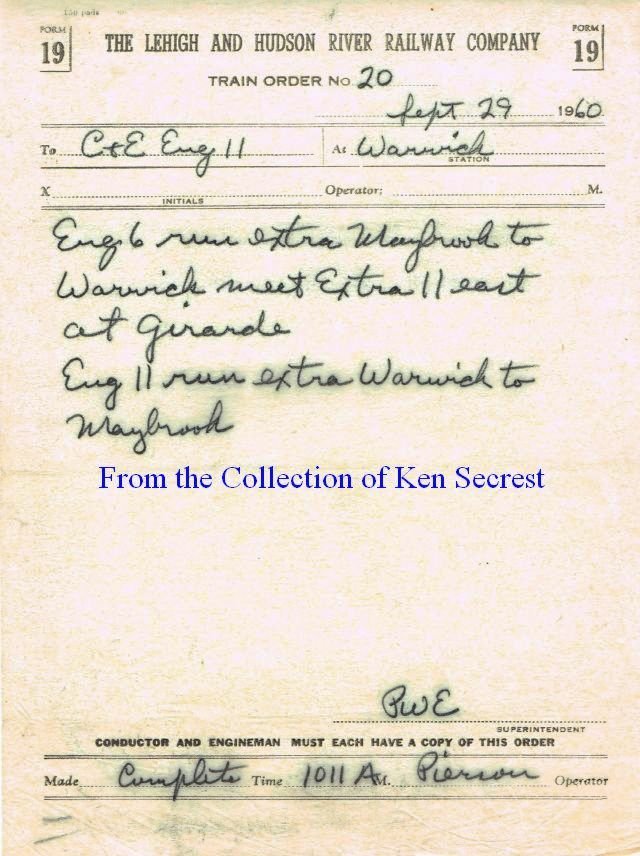 150 pads
FORM 19
FORM 19
THE LEHIGH AND HUDSON RIVER RAILWAY COMPANY
TRAIN ORDER No. 20
Sept 29 1960
To C+E Eng 11 At Warwick
STATION
X Operator: M.
INITIALS
Eng 6 run extra Maybrook to
Warwick meet Extra 11 east
at Girarde
Eng 11 run extra Warwick to
Maybrook
From the Collection of Ken Secrest
PWE
SUPERINTENDENT
CONDUCTOR AND ENGINEMAN MUST EACH HAVE A COPY OF THIS ORDER
Made Complete Time 1011 A M. Pierson Operator